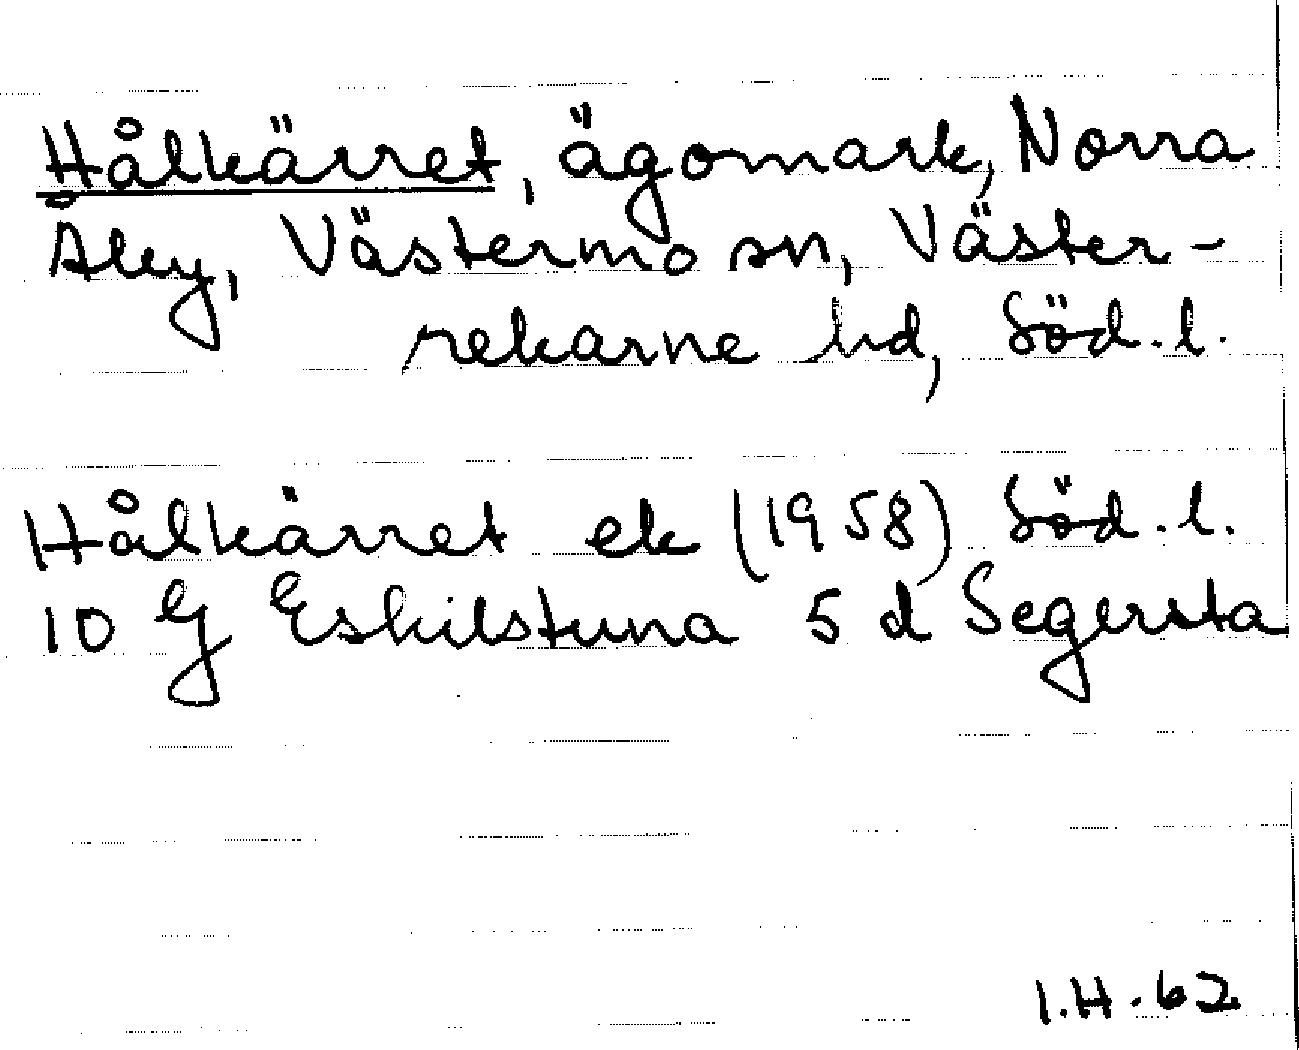 Hålkärret, ägomark, Norra
Åby, Västermo sn, Väster-
rekarne hd, Söd. l.
Hålkärret ek (1958) Söd. l.
10 G Eskilstuna 5 d Segersta
I.H. 62